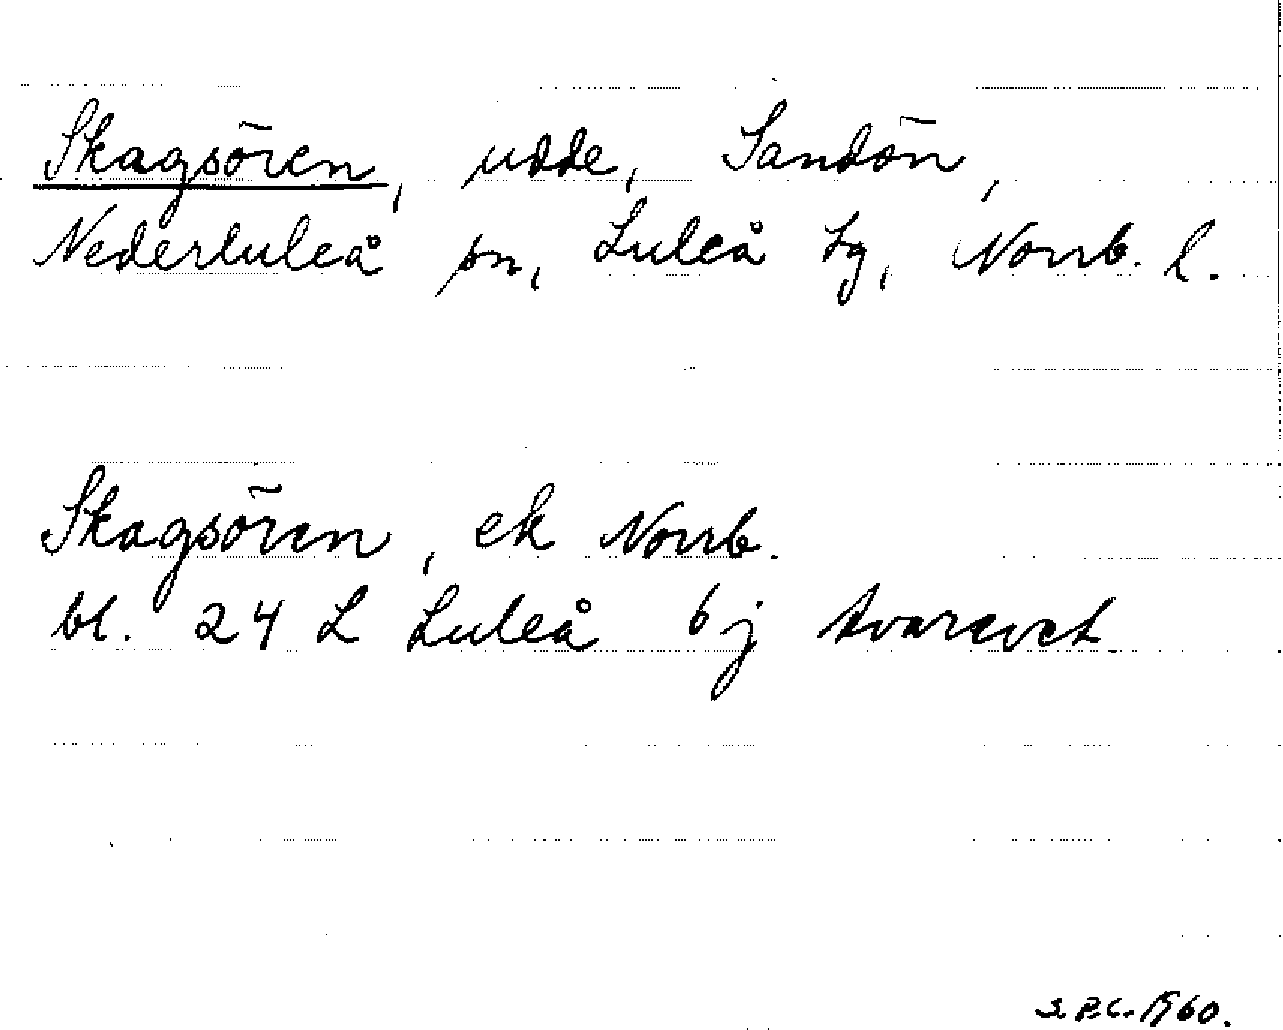 Skagsören, udde, Sandön,
Nederluleå sn, Luleå tg, Norrb. l.
Skagsören, ek Norrb.
bl. 24 L Luleå 6j
1960.